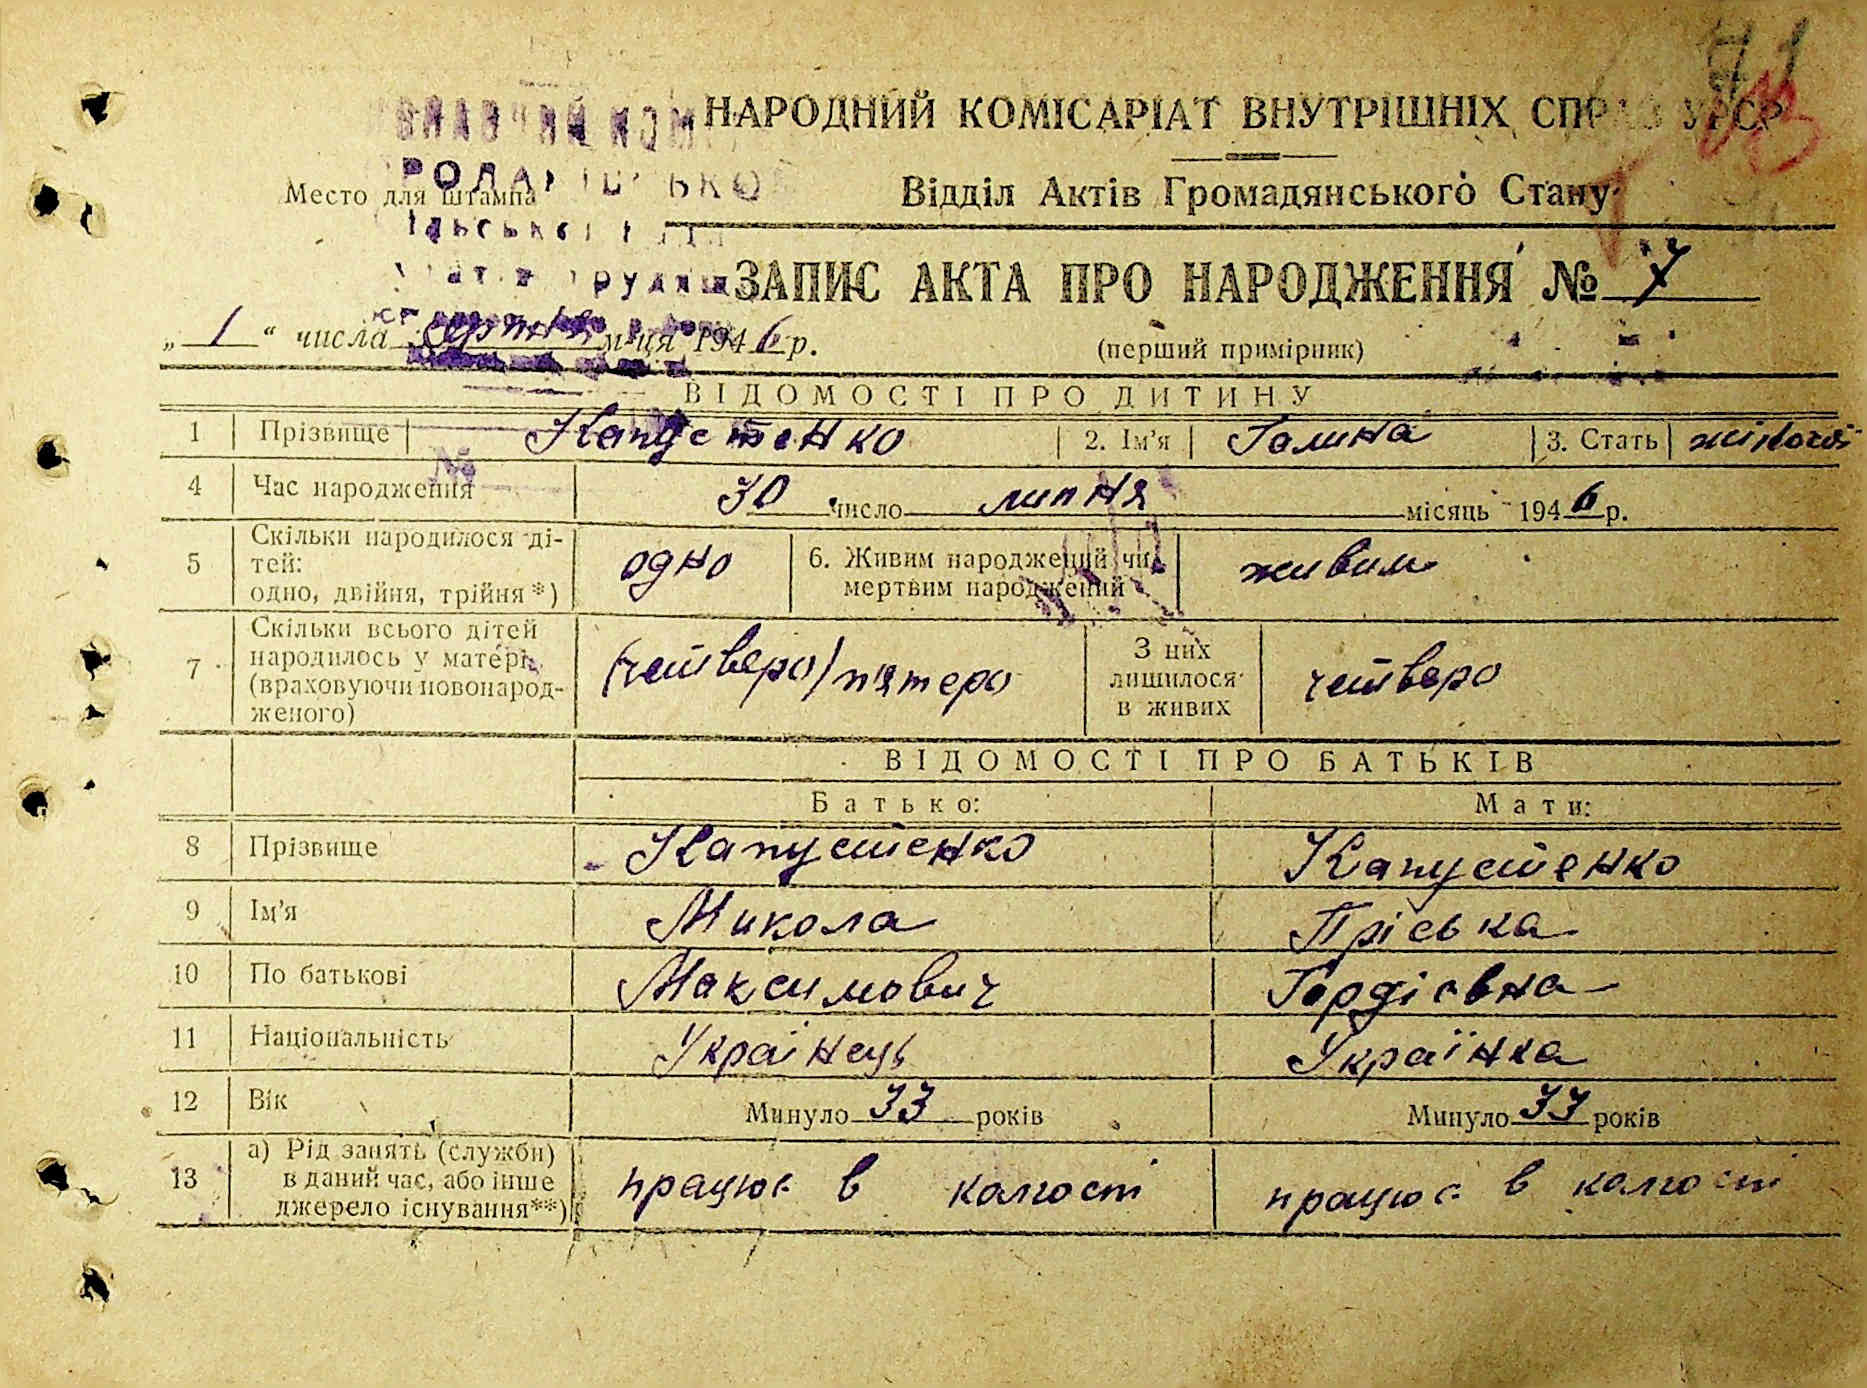 НАРОДНИЙ КОМІСАРІАТ ВНУТРІШНІХ СПРАВ УРСР
Место для штампа
Відділ Актів Громадянського Стану
ЗАПИС АКТА ПРО НАРОДЖЕННЯ № 7
„ 1 “ числа серпня м-ця 1946 р.
(перший примірник)
ВІДОМОСТІ ПРО ДИТИНУ
1 Прізвище Капустенко 2. Ім'я Галина 3. Стать жіночої
4 Час народження 30 число липня місяць 1946 р.
5 Скільки народилося ді-
тей:
одно, двійня, трійня*) одно 6. Живим народжений чи
мертвим народжений живим
7 Скільки всього дітей
народилось у матері
(враховуючи новонарод-
женого) (четверо) п'ятеро З них
лишилося
в живих четверо
ВІДОМОСТІ ПРО БАТЬКІВ
Батько: Мати:
8 Прізвище Капустенко Капустенко
9 Ім'я Микола Пріська
10 По батькові Максимович Гордієвна
11 Національність Українець Українка
12 Вік Минуло 33 років Минуло 33 років
13 а) Рід занять (служби)
в даний час, або інше
джерело існування**) працює в колгості працює в колгості